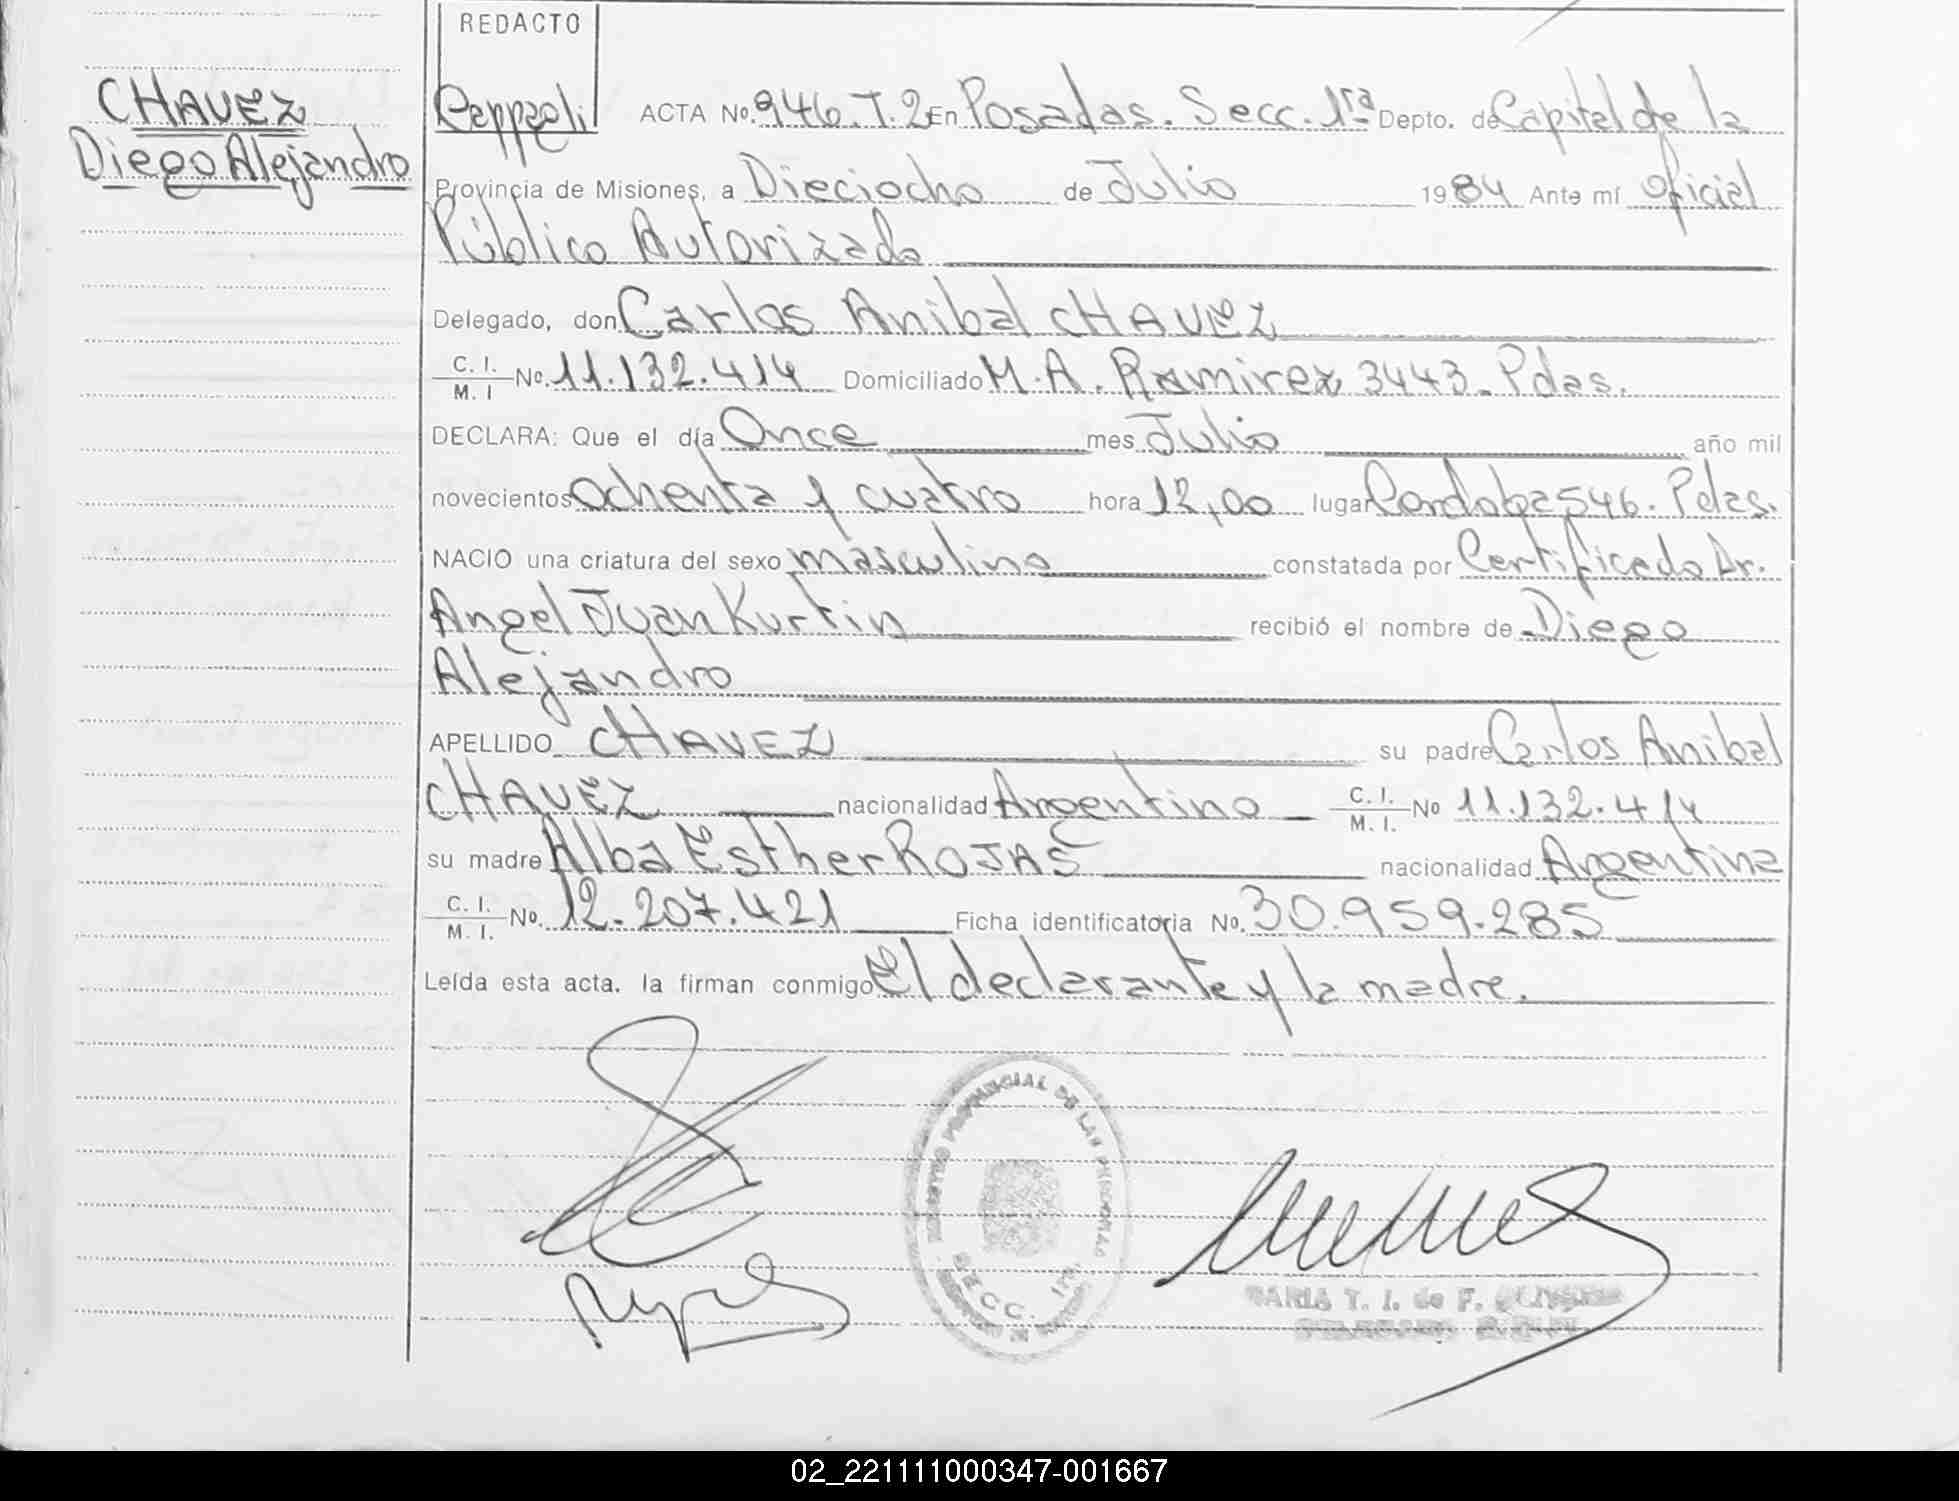 REDACTO
CHAVEZ
Diego Alejandro
ACTA No. 946. T. 2 En Posadas. Secc. 1ra Depto. de Capital de la
Provincia de Misiones, a Dieciocho de Julio 1984 Ante mí Oficial
Público Autorizado
Delegado, don Carlos Anibal CHAVEZ
C. I. M. I No. 11.132.414 Domiciliado M. A. Ramirez 3443 - Pdas.
DECLARA: Que el día Once mes Julio año mil
novecientos ochenta y cuatro hora 12,00 lugar Cordoba 546. Pdas.
NACIO una criatura del sexo masculino constatada por Certificado Dr.
Angel Juan Kurtin recibió el nombre de Diego
Alejandro
APELLIDO CHAVEZ su padre Carlos Anibal
CHAVEZ nacionalidad Argentino C. I. M. I. No 11.132.414
su madre Alba Esther ROJAS nacionalidad Argentina
C. I. M. I. No. 12.207.421 Ficha identificatoria No. 30.959.285
Leída esta acta. la firman conmigo El declarante y la madre.
REGISTRO PROVINCIAL DE LAS PERSONAS
SECC. 1ra.
MARIA T. I. de F.
02_221111000347-001667